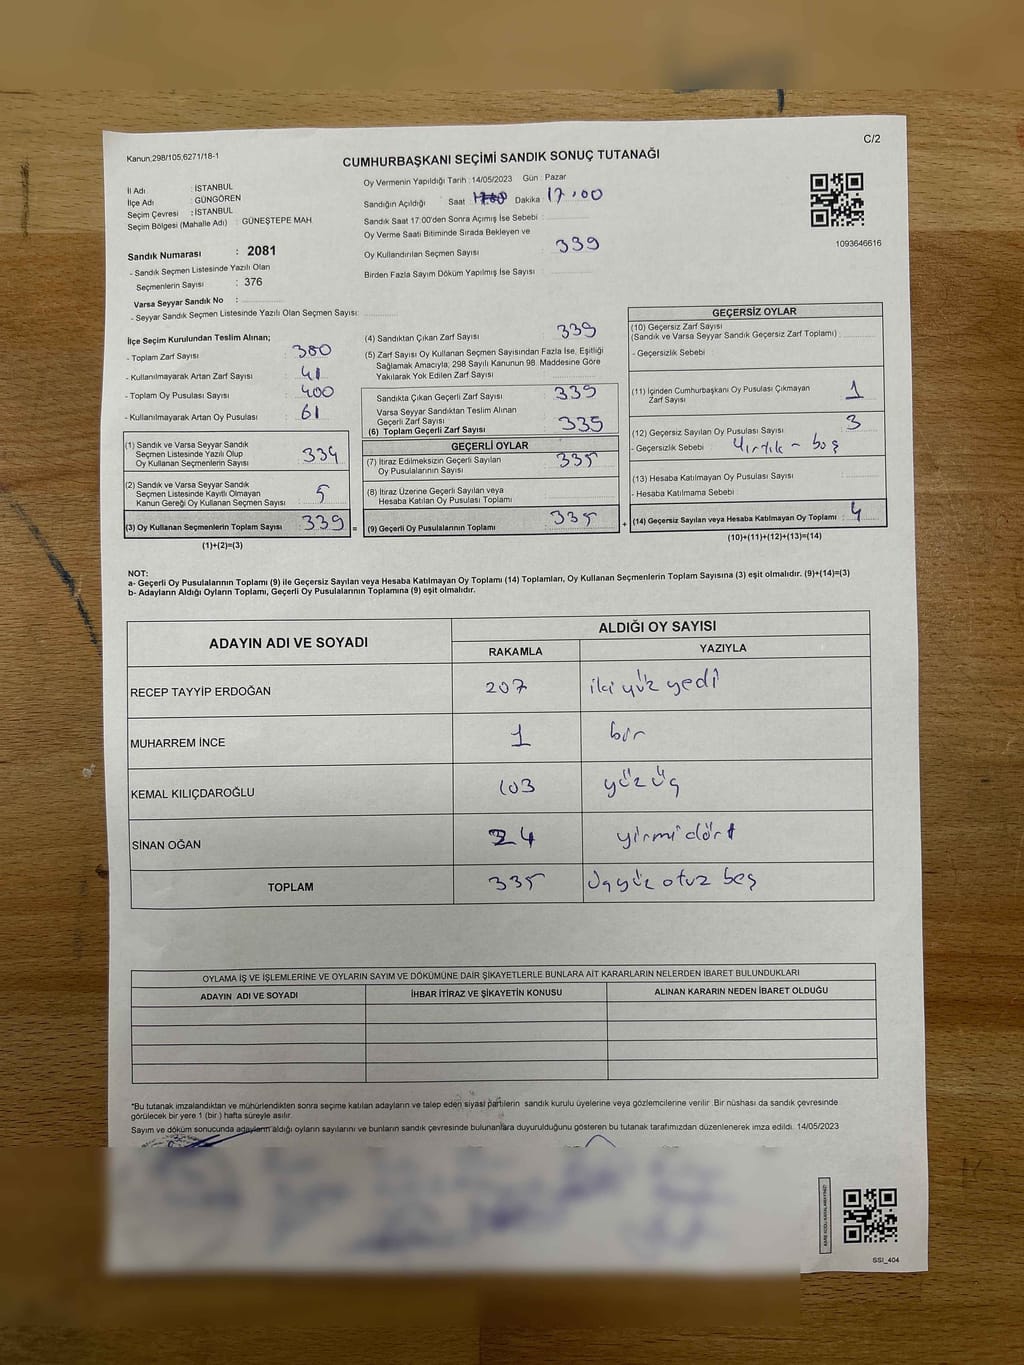 C/2
Kanun,298/105,6271/18-1
CUMHURBAŞKANI SEÇİMİ SANDIK SONUÇ TUTANAĞI
İl Adı : İSTANBUL
İlçe Adı : GÜNGÖREN
Seçim Çevresi : İSTANBUL
Seçim Bölgesi (Mahalle Adı) : GÜNEŞTEPE MAH
Oy Vermenin Yapıldığı Tarih : 14/05/2023 Gün : Pazar
Sandığın Açıldığı Saat Dakika 17.00
Sandık Saat 17:00'den Sonra Açımış İse Sebebi :
Oy Verme Saati Bitiminde Sırada Bekleyen ve
Oy Kullandırılan Seçmen Sayısı : 339
Birden Fazla Sayım Döküm Yapılmış İse Sayısı :
1093646616
Sandık Numarası : 2081
- Sandık Seçmen Listesinde Yazılı Olan
Seçmenlerin Sayısı : 376
Varsa Seyyar Sandık No :
- Seyyar Sandık Seçmen Listesinde Yazılı Olan Seçmen Sayısı:
İlçe Seçim Kurulundan Teslim Alınan;
- Toplam Zarf Sayısı : 380
- Kullanılmayarak Artan Zarf Sayısı : 41
- Toplam Oy Pusulası Sayısı : 400
- Kullanılmayarak Artan Oy Pusulası : 61
(1) Sandık ve Varsa Seyyar Sandık
Seçmen Listesinde Yazılı Olup
Oy Kullanan Seçmenlerin Sayısı : 334
(2) Sandık ve Varsa Seyyar Sandık
Seçmen Listesinde Kayıtlı Olmayan
Kanun Gereği Oy Kullanan Seçmen Sayısı : 5
(3) Oy Kullanan Seçmenlerin Toplam Sayısı : 339 =
(1)+(2)=(3)
(4) Sandıktan Çıkan Zarf Sayısı : 339
(5) Zarf Sayısı Oy Kullanan Seçmen Sayısından Fazla İse, Eşitliği
Sağlamak Amacıyla; 298 Sayılı Kanunun 98. Maddesine Göre
Yakılarak Yok Edilen Zarf Sayısı :
Sandıkta Çıkan Geçerli Zarf Sayısı : 339
Varsa Seyyar Sandıktan Teslim Alınan
Geçerli Zarf Sayısı :
(6) Toplam Geçerli Zarf Sayısı : 339
GEÇERLİ OYLAR
(7) İtiraz Edilmeksizin Geçerli Sayılan
Oy Pusulalarının Sayısı : 335
(8) İtiraz Üzerine Geçerli Sayılan veya
Hesaba Katılan Oy Pusulası Toplamı :
(9) Geçerli Oy Pusulalarının Toplamı : 335 +
GEÇERSİZ OYLAR
(10) Geçersiz Zarf Sayısı
(Sandık ve Varsa Seyyar Sandık Geçersiz Zarf Toplamı) :
- Geçersizlik Sebebi :
(11) İçinden Cumhurbaşkanı Oy Pusulası Çıkmayan
Zarf Sayısı : 1
(12) Geçersiz Sayılan Oy Pusulası Sayısı : 3
- Geçersizlik Sebebi : Yırtık - boş
(13) Hesaba Katılmayan Oy Pusulası Sayısı :
- Hesaba Katılmama Sebebi :
(14) Geçersiz Sayılan veya Hesaba Katılmayan Oy Toplamı : 4
(10)+(11)+(12)+(13)=(14)
NOT:
a- Geçerli Oy Pusulalarının Toplamı (9) ile Geçersiz Sayılan veya Hesaba Katılmayan Oy Toplamı (14) Toplamları, Oy Kullanan Seçmenlerin Toplam Sayısına (3) eşit olmalıdır. (9)+(14)=(3)
b- Adayların Aldığı Oyların Toplamı, Geçerli Oy Pusulalarının Toplamına (9) eşit olmalıdır.
ADAYIN ADI VE SOYADI
ALDIĞI OY SAYISI
RAKAMLA YAZIYLA
RECEP TAYYİP ERDOĞAN 207 iki yüz yedi
MUHARREM İNCE 1 bir
KEMAL KILIÇDAROĞLU 103 yüz üç
SİNAN OĞAN 24 yirmi dört
TOPLAM 335 üçyüz otuz beş
OYLAMA İŞ VE İŞLEMLERİNE VE OYLARIN SAYIM VE DÖKÜMÜNE DAİR ŞİKAYETLERLE BUNLARA AİT KARARLARIN NELERDEN İBARET BULUNDUKLARI
ADAYIN ADI VE SOYADI İHBAR İTİRAZ VE ŞİKAYETİN KONUSU ALINAN KARARIN NEDEN İBARET OLDUĞU
*Bu tutanak imzalandıktan ve mühürlendikten sonra seçime katılan adayların ve talep eden siyasi partilerin sandık kurulu üyelerine veya gözlemcilerine verilir. Bir nüshası da sandık çevresinde
görülecek bir yere 1 (bir) hafta süreyle asılır.
Sayım ve döküm sonucunda adayların aldığı oyların sayılarını ve bunların sandık çevresinde bulunanlara duyurulduğunu gösteren bu tutanak tarafımızdan düzenlenerek imza edildi. 14/05/2023
SSI_404